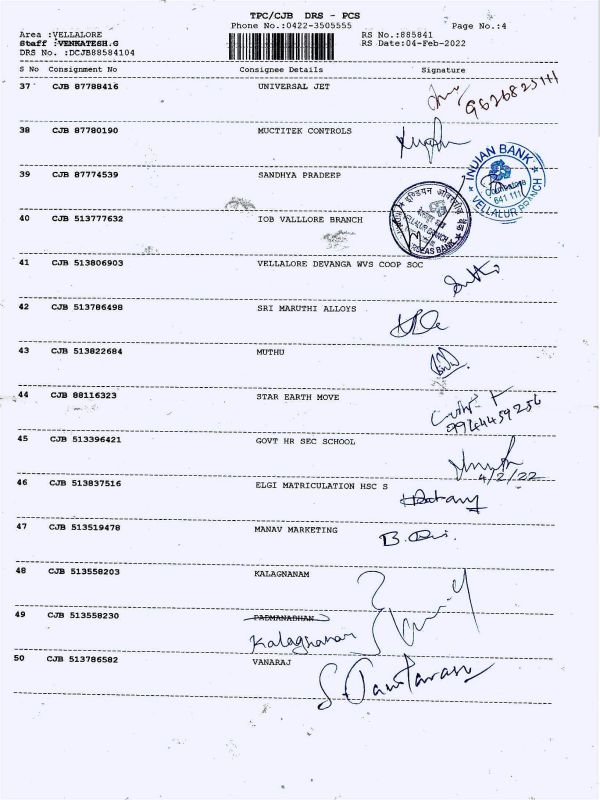 TPC/CJB DRS - PCS
Phone No.:0422-3505555 Page No.:4
Area :VELLALORE RS No.:885841
Staff :VENKATESH.G RS Date:04-Feb-2022
DRS No. :DCJB88584104
S No Consignment No Consignee Details Signature
37 CJB 87788416 UNIVERSAL JET
9626825111
38 CJB 87780190 MUCTITEK CONTROLS
INDIAN BANK
COIMBATORE
641 111
VELLALUR BRANCH
39 CJB 87774539 SANDHYA PRADEEP
40 CJB 513777632 IOB VALLLORE BRANCH
VELLALUR BRANCH
OVERSEAS BANK
41 CJB 513806903 VELLALORE DEVANGA WVS COOP SOC
42 CJB 513786498 SRI MARUTHI ALLOYS
43 CJB 513822684 MUTHU
44 CJB 88116323 STAR EARTH MOVE
9944459256
45 CJB 513396421 GOVT HR SEC SCHOOL
4/2/22
46 CJB 513837516 ELGI MATRICULATION HSC S
47 CJB 513519478 MANAV MARKETING
48 CJB 513558203 KALAGNANAM
49 CJB 513558230 PADMANABHAN
Kalagnanam
50 CJB 513786582 VANARAJ